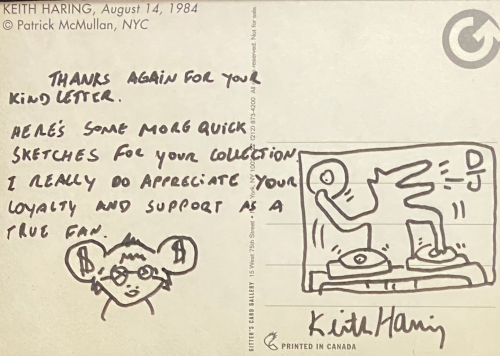 KEITH HARING, August 14, 1984
© Patrick McMullan, NYC
THANKS AGAIN FOR YOUR
KIND LETTER.
HERE'S SOME MORE QUICK
SKETCHES FOR YOUR COLLECTION.
I REALLY DO APPRECIATE YOUR
LOYALTY AND SUPPORT AS A
TRUE FAN.
$ $
GITTER'S CARD GALLERY 15 West 75th Street • New York (212) 873-4200 All rights reserved. Not for sale.
D
J
Keith Haring
PRINTED IN CANADA